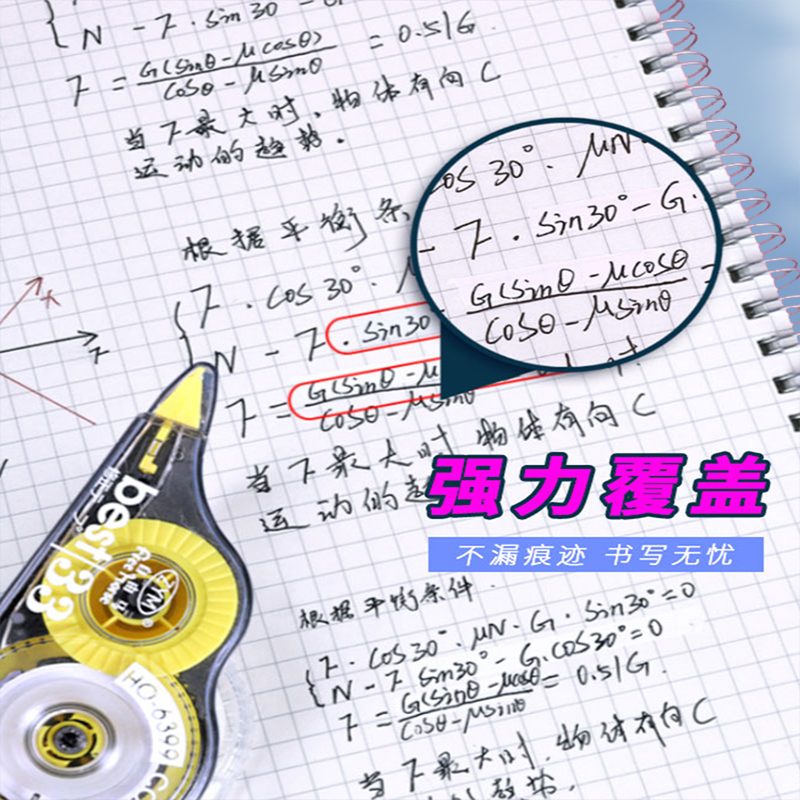 N - 7 · sin30 - G
7 = G(sinθ - μcosθ) / cosθ - μsinθ = 0.51G.
当 7 最大时, 物体有向 C
运动的趋势.
根据平衡条
7 · cos30°
N - 7 · sin30
7 = G(sinθ - μ / cosθ - μsinθ
当 7 最大时 物体有向 C
运动的趋
cos30° · μN.
- 7 · sin30° - G.
G(sinθ - μcosθ
cosθ - μsinθ
强力覆盖
不漏痕迹 书写无忧
根据平衡条件.
7 · cos30° · μN · G · sin30° = 0
N - 7 sin30° - G · cos30° = 0
7 = G(sinθ - μcosθ / cosθ - μsinθ = 0.51G.
当 7 最大时, 物体有向 C
best 33
HO-6399